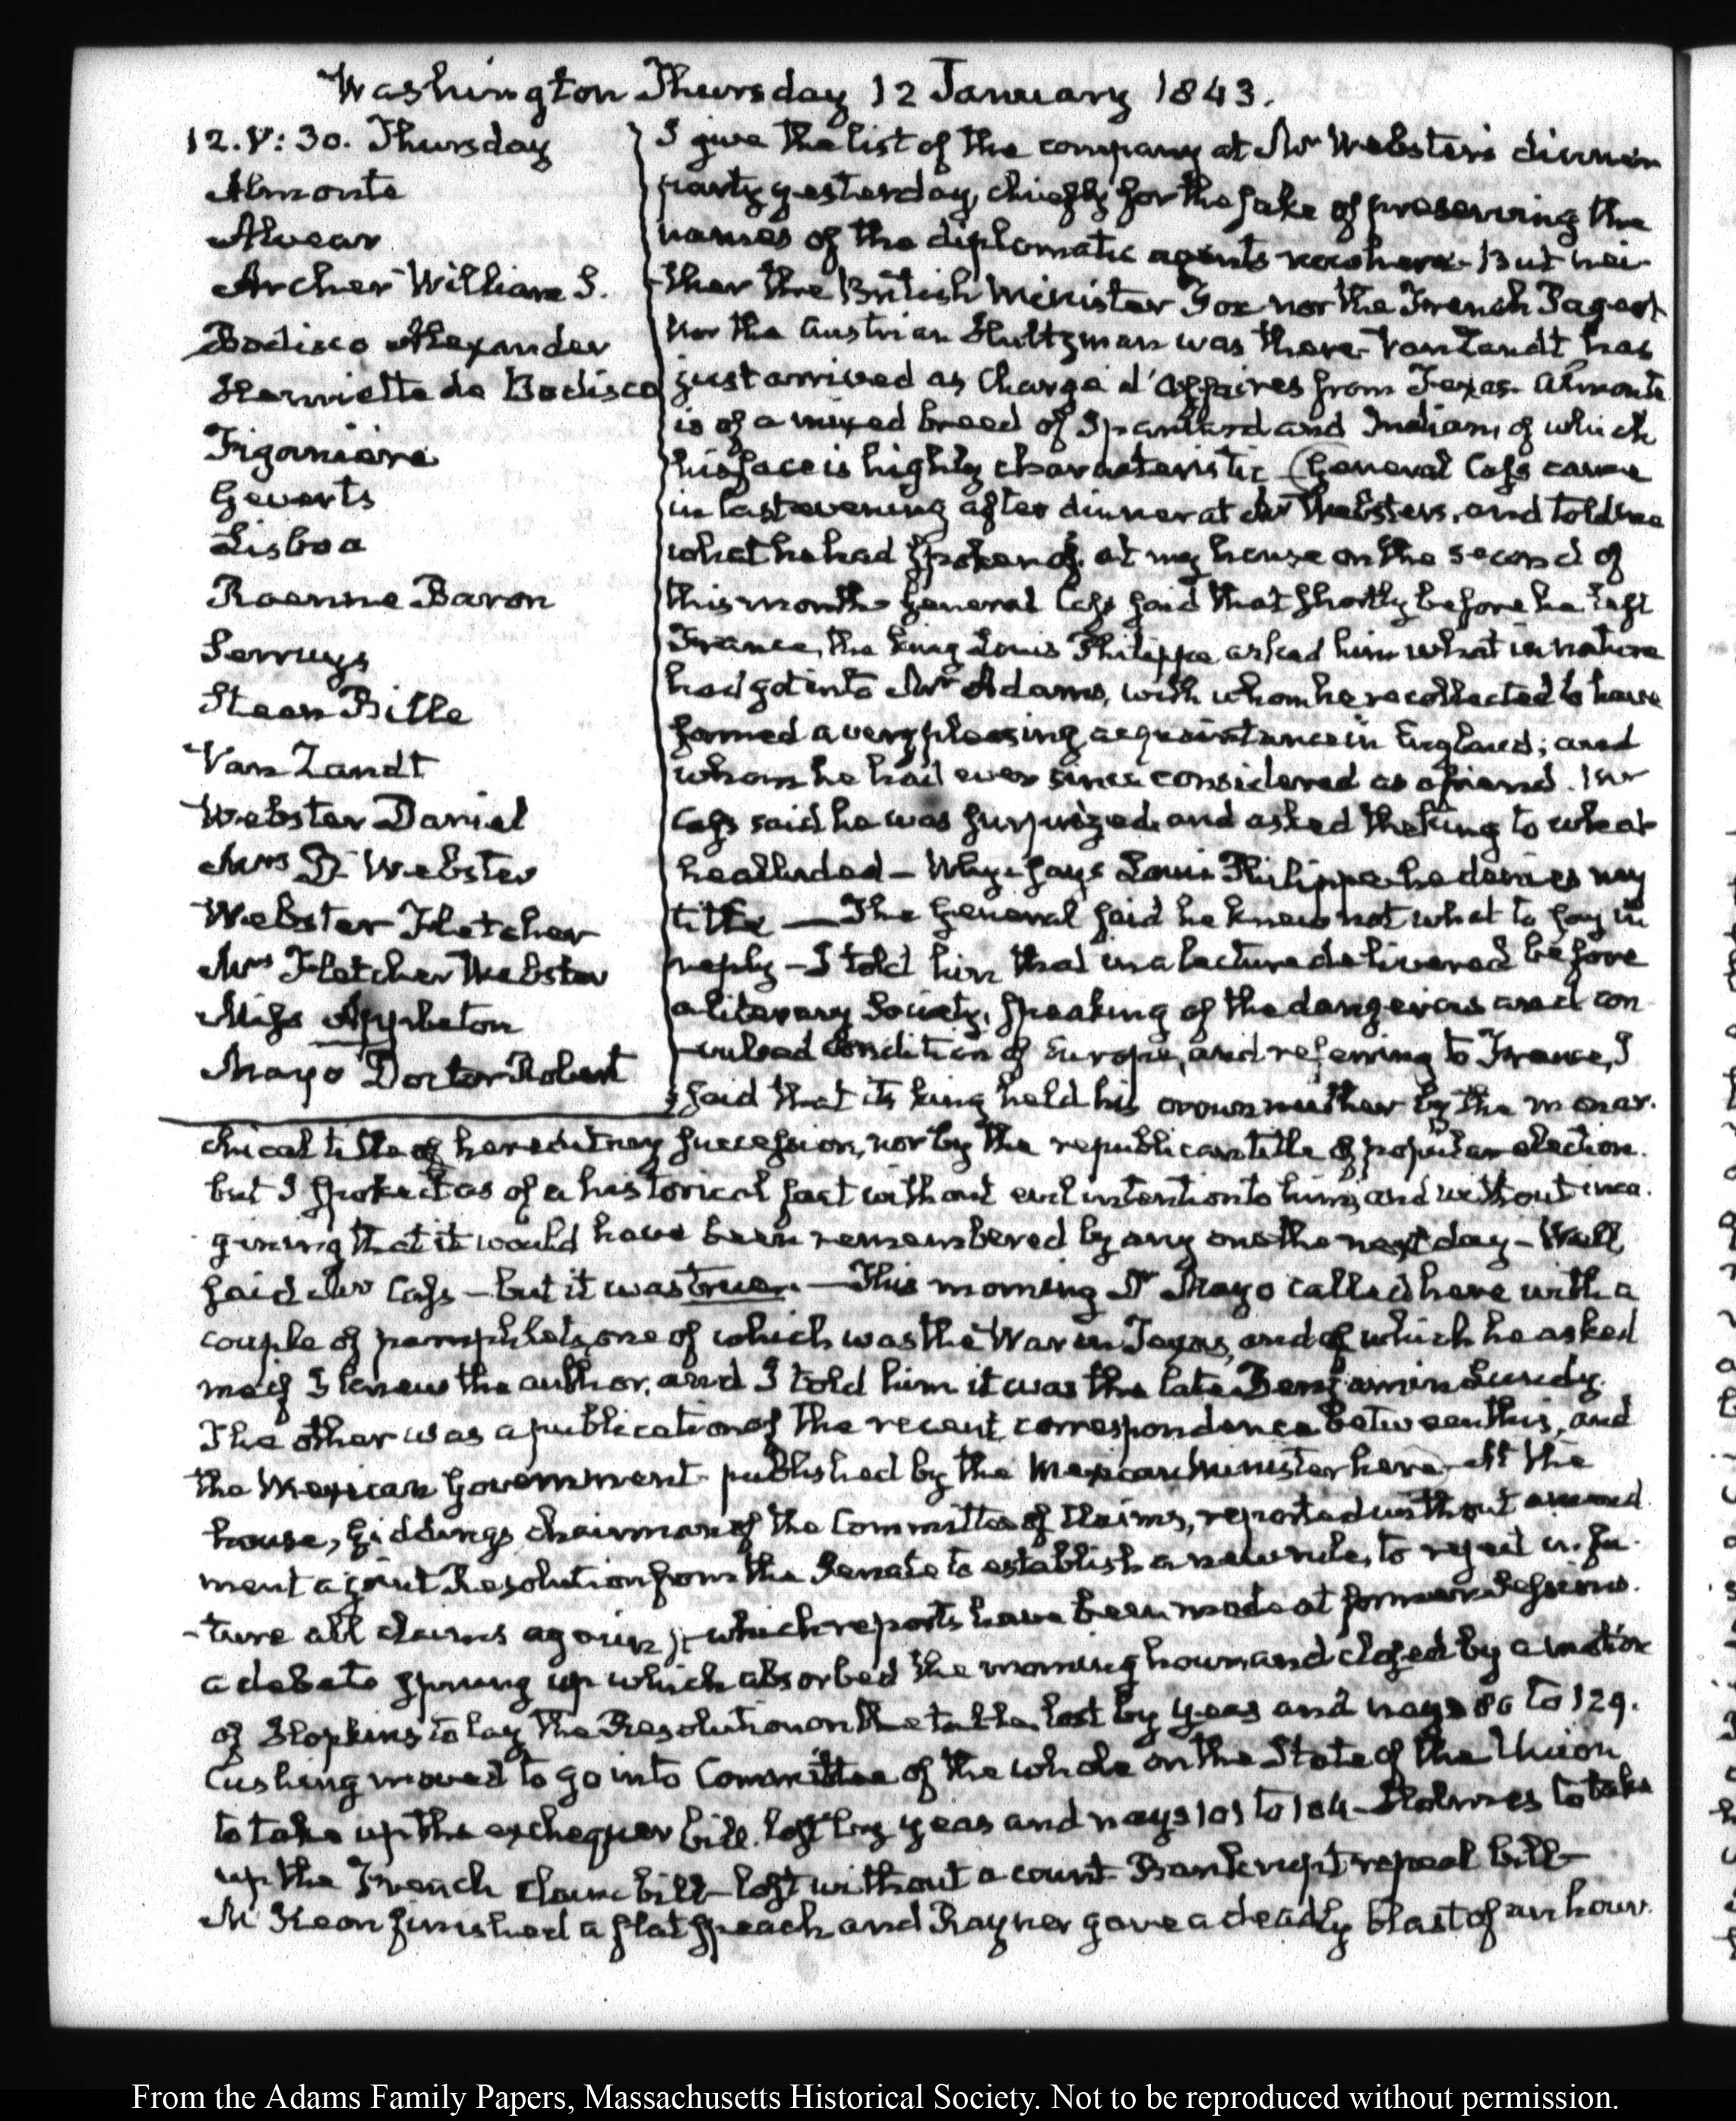 Washington Thursday 12 January 1843.
12. V: 30. Thursday
Almonte
Alvear
Archer William S.
Bodisco Alexander
Harriette de Bodisco
Figaniere
Geverts
Lisboa
Roenne Baron
Serruys
Steen Bille
Van Zandt
Webster Daniel
Mrs D. Webster
Webster Fletcher
Mrs Fletcher Webster
Miss Appleton
Mayo Doctor Robert
I give the list of the company at Mr Webster's dinner
party yesterday, chiefly for the sake of preserving the
names of the diplomatic agents now here. But nei-
ther the British Minister Fox nor the French Pageot
nor the Austrian Hultzman was there. Van Zandt has
just arrived as Chargé d'Affaires from Texas. Almonte
is of a mixed breed of Spaniard and Indian, of which
his face is highly characteristic. General Cass came
in last evening after dinner at Mr Websters, and told me
what he had spoken of, at my house on the second of
this month. General Cass said that shortly before he left
France, the king Louis Philippe asked him what in nature
had got into Mr Adams, with whom he recollected to have
formed a very pleasing acquaintance in England; and
whom he had ever since considered as a friend. Mr
Cass said he was surprized, and asked the king to what
he alluded – Why, says Louis Philippe he denies my
title — The General said he knew not what to say in
reply – I told him that in a lecture delivered before
a literary Society, speaking of the dangerous and con-
-vulsed condition of Europe, and referring to France, I
said that its king held his crown neither by the monar-
chical title of hereditary succession, nor by the republican title of popular election.
but I spoke it as of a historical fact without evil intention to him, and without ima-
gining that it would have been remembered by any one the next day – Well
said Mr Cass – but it was true. — This morning Dr Mayo called here with a
couple of pamphlets, one of which was the War in Texas, and of which he asked
me if I knew the author, and I told him it was the late Benjamin Lundy.
The other was a publication of the recent correspondence between this, and
the Mexican Government published by the Mexican Minister here – At the
house, Giddings chairman of the Committee of Claims, reported without amend-
ment a joint Resolution from the Senate to establish a new rule, to reject in fu-
-ture all claims against which reports have been made at former Sessions.
a debate sprung up which absorbed the morning hour and closed by a motion
of Hopkins to lay the Resolution on the table, lost by yeas and nays 80 to 129.
Cushing moved to go into Committee of the whole on the State of the Union
to take up the exchequer bill. lost by yeas and nays 101 to 104 – Holmes to take
up the French claim bill – lost without a count. Bankrupt repeal bill –
McKeon finished a flat speech and Rayner gave a deadly blast of an hour.
From the Adams Family Papers, Massachusetts Historical Society. Not to be reproduced without permission.